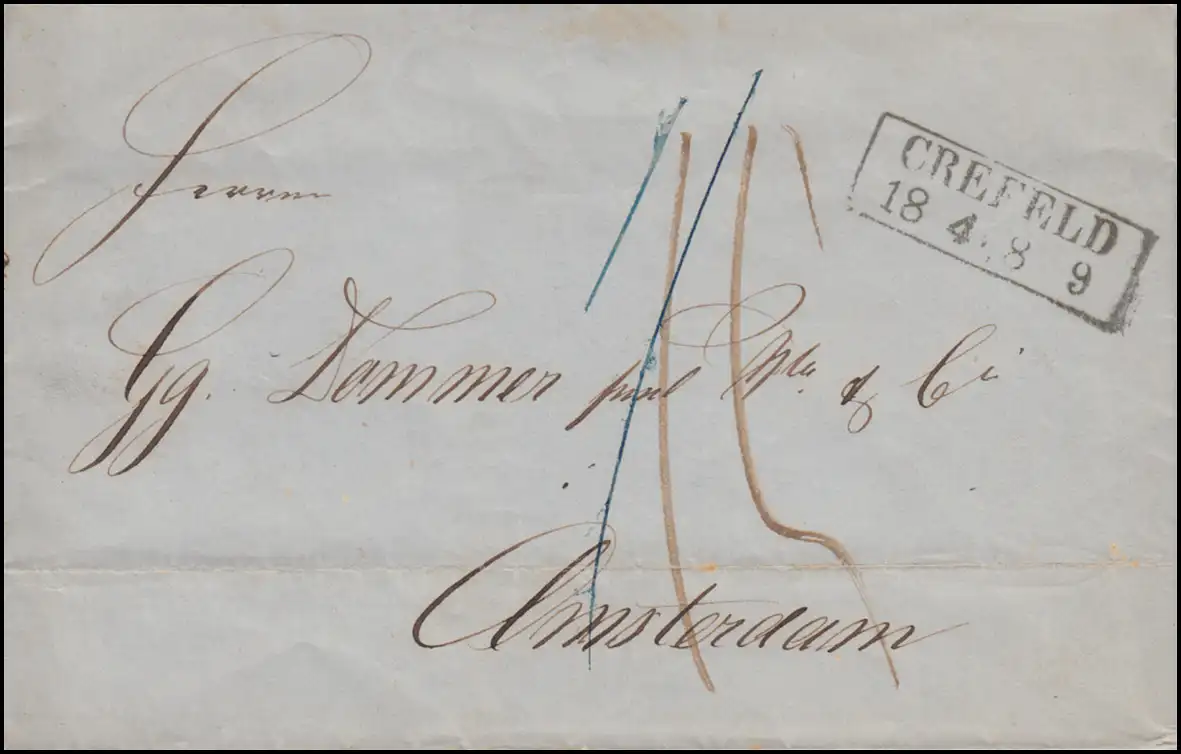 CREFELD
18 4. 8 9
Herren
Gg. Dommer & Ci
Amsterdam